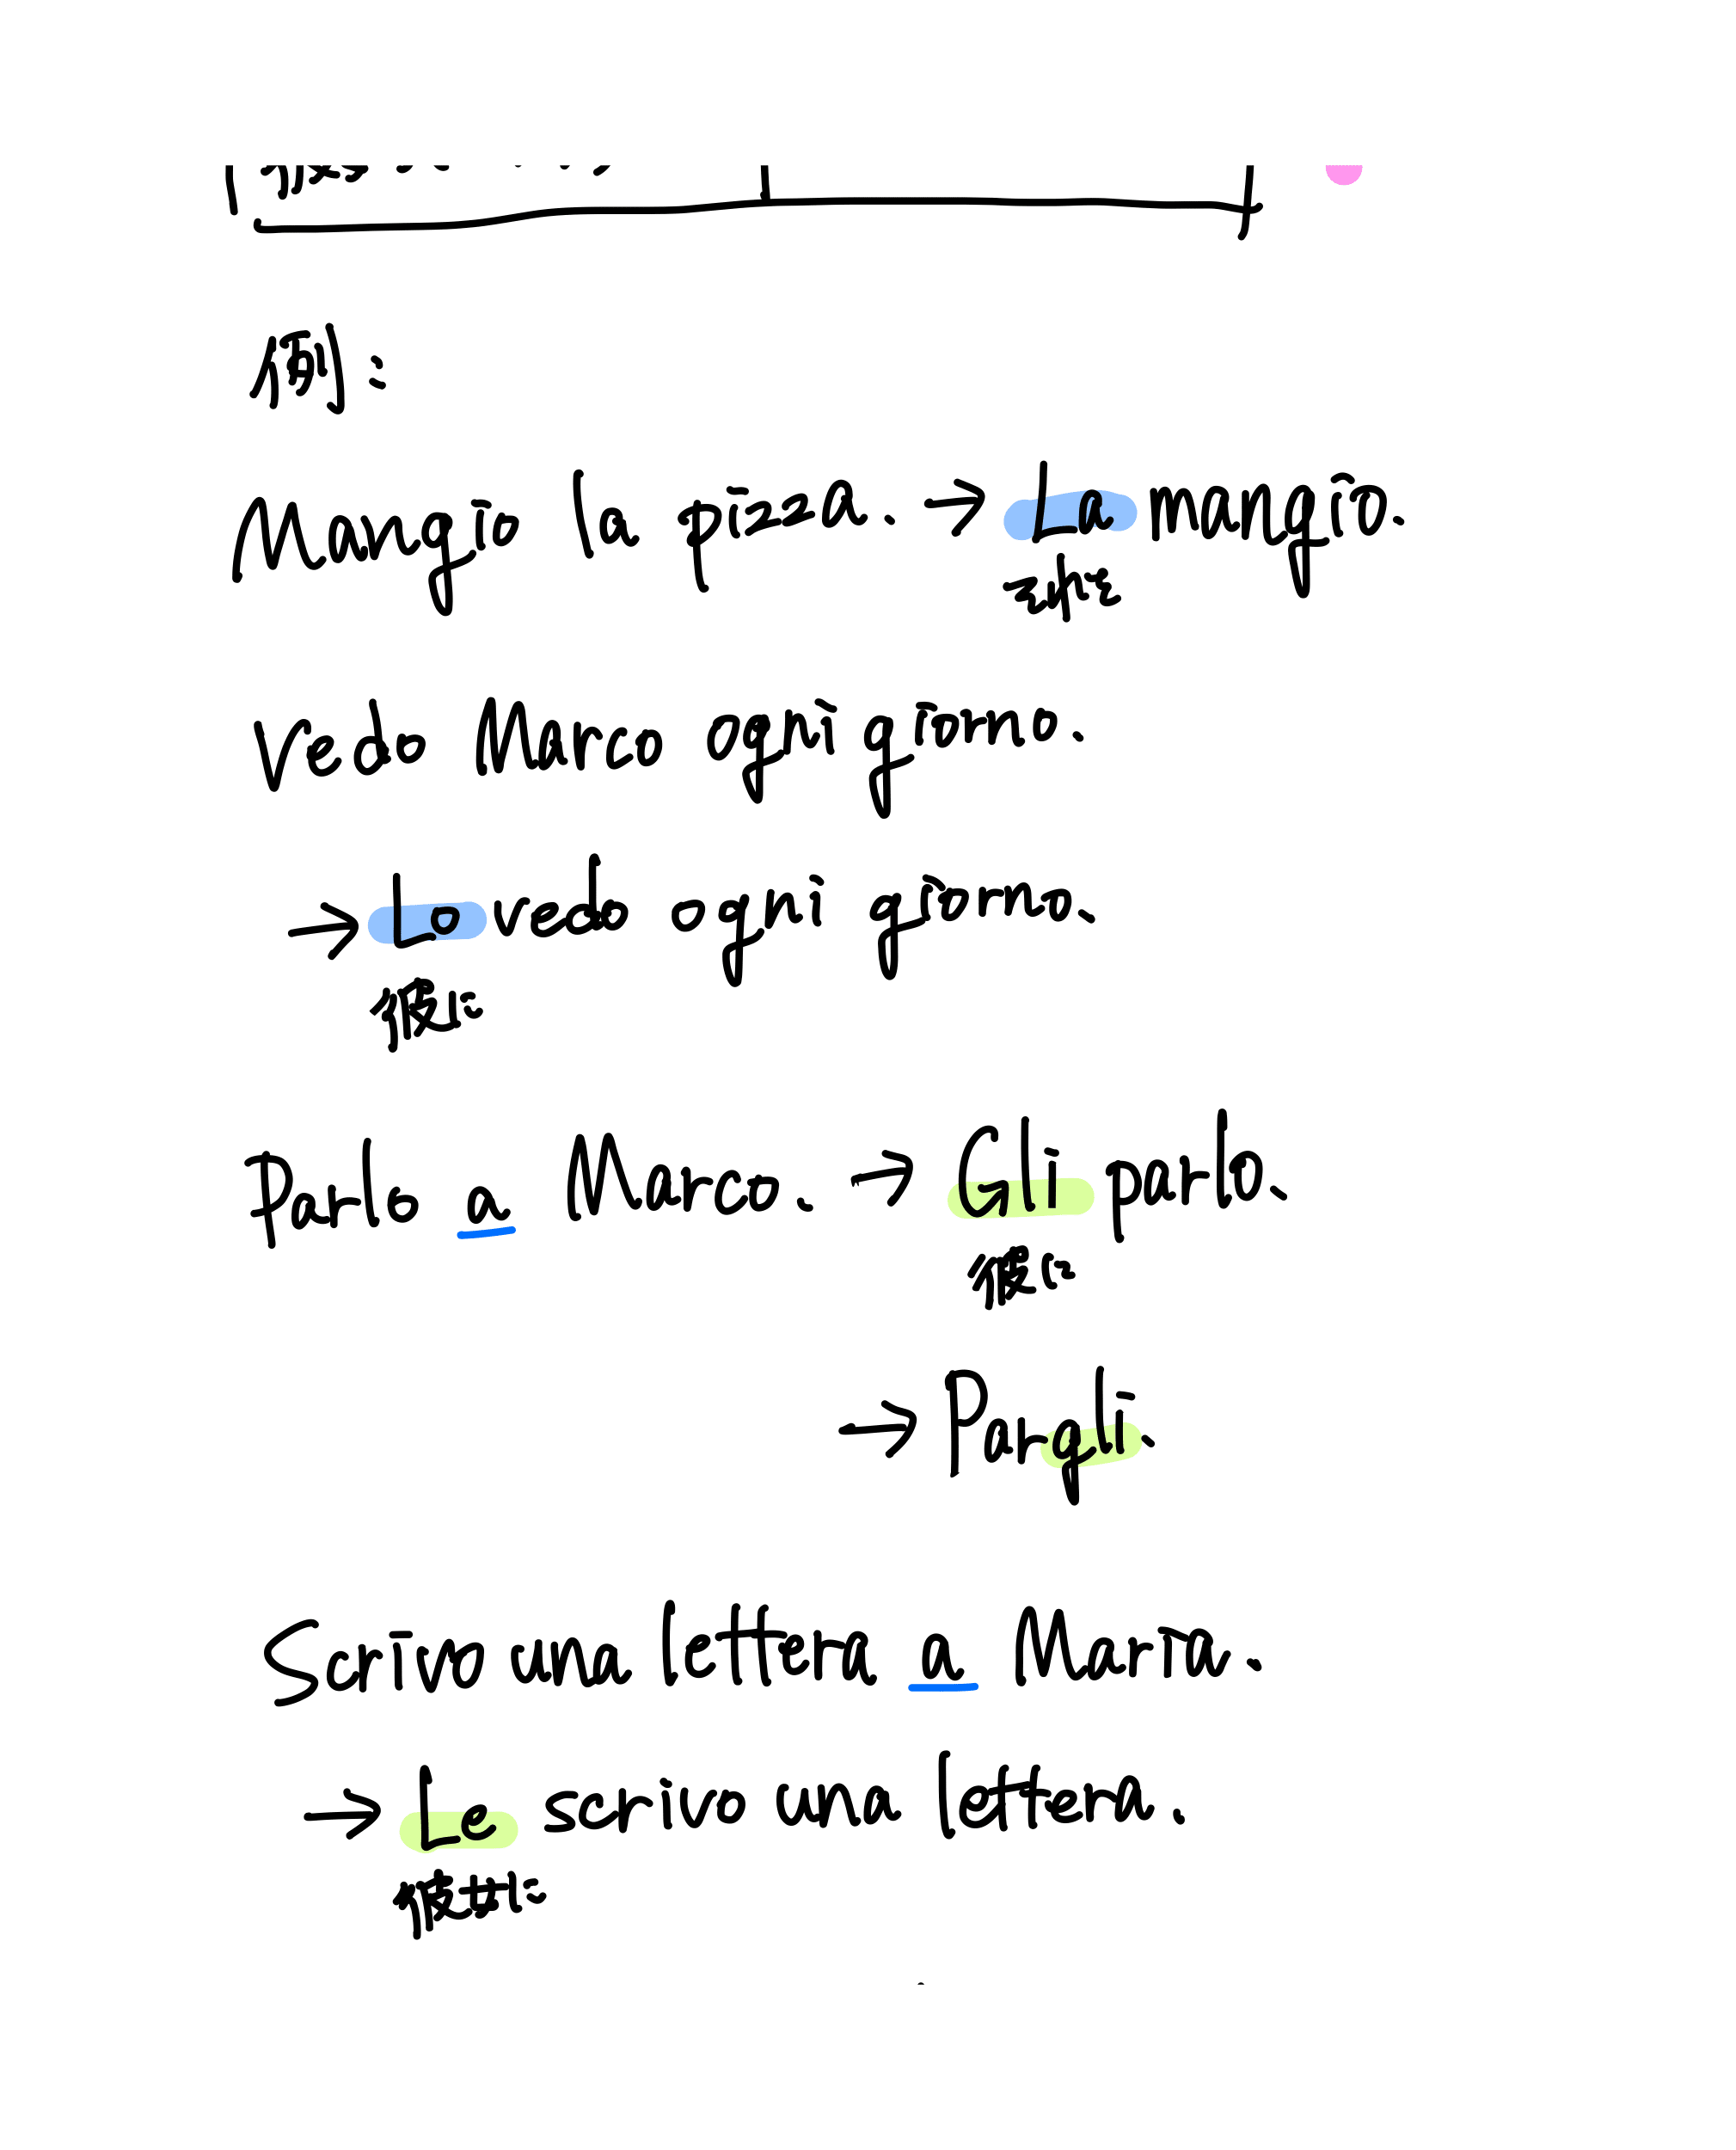 例:
Mangio la pizza. → La mangio.
それを
Vedo Marco ogni giorno.
→ Lo vedo ogni giorno.
彼に
Parlo a Marco. → Gli parlo.
彼に
→ Pargli.
Scrivo una lettera a Maria.
→ Le scrivo una lettera.
彼女に